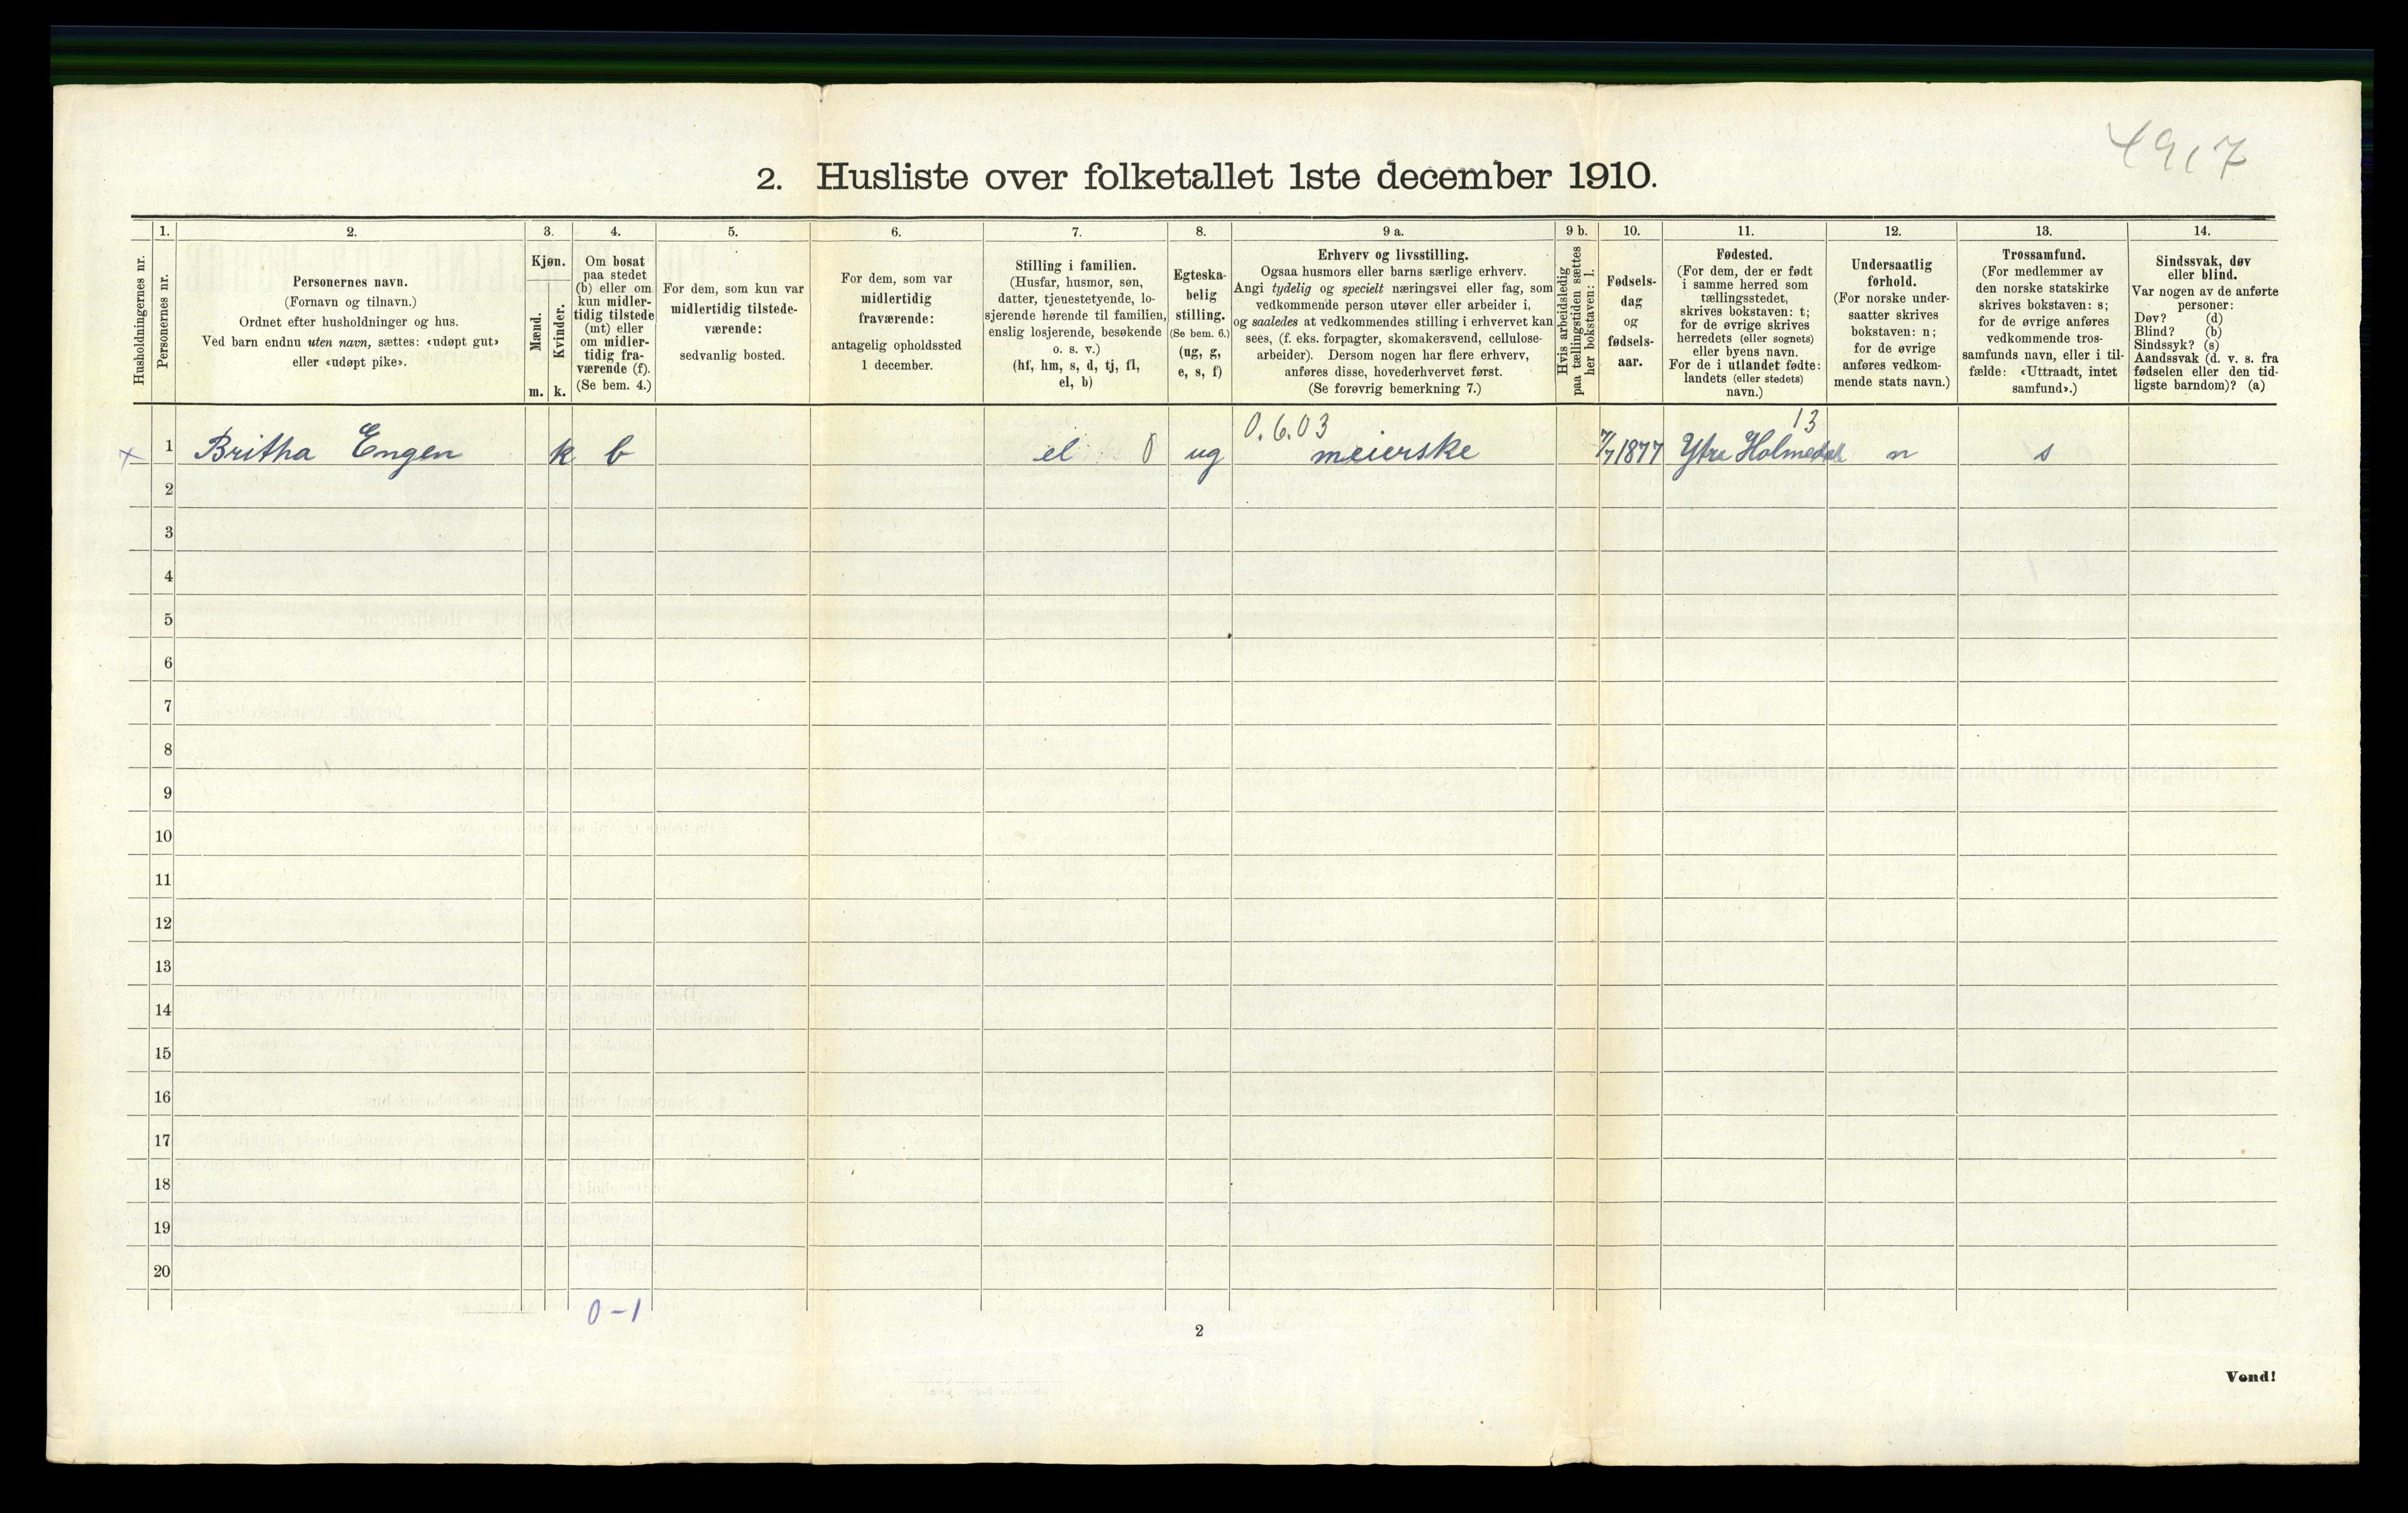 4917
2. Husliste over folketallet 1ste december 1910.
1. 2. 3. 4. 5. 6. 7. 8. 9 a. 9 b. 10. 11. 12. 13. 14.
Husholdningernes nr.
Personernes nr.
Personernes navn.
(Fornavn og tilnavn.)
Ordnet efter husholdninger og hus.
Ved barn endnu uten navn, sættes: «udøpt gut»
eller «udøpt pike».
Kjøn.
Mænd.
Kvinder.
m. k.
Om bosat
paa stedet
(b) eller om
kun midler-
tidig tilstede
(mt) eller
om midler-
tidig fra-
værende (f).
(Se bem. 4.)
For dem, som kun var
midlertidig tilstede-
værende:
sedvanlig bosted.
For dem, som var
midlertidig
fraværende:
antagelig opholdssted
1 december.
Stilling i familien.
(Husfar, husmor, søn,
datter, tjenestetyende, lo-
sjerende hørende til familien,
enslig losjerende, besøkende
o. s. v.)
(hf, hm, s, d, tj, fl,
el, b)
Egteska-
belig
stilling.
(Se bem. 6.)
(ug, g,
e, s, f)
Erhverv og livsstilling.
Ogsaa husmors eller barns særlige erhverv.
Angi tydelig og specielt næringsvei eller fag, som
vedkommende person utøver eller arbeider i,
og saaledes at vedkommendes stilling i erhvervet kan
sees, (f. eks. forpagter, skomakersvend, cellulose-
arbeider). Dersom nogen har flere erhverv,
anføres disse, hovederhvervet først.
(Se forøvrig bemerkning 7.)
Hvis arbeidsledig
paa tællingstiden sættes
her bokstaven: l.
Fødsels-
dag
og
fødsels-
aar.
Fødested.
(For dem, der er født
i samme herred som
tællingsstedet,
skrives bokstaven: t;
for de øvrige skrives
herredets (eller sognets)
eller byens navn.
For de i utlandet fødte:
landets (eller stedets)
navn.)
Undersaatlig
forhold.
(For norske under-
saatter skrives
bokstaven: n;
for de øvrige
anføres vedkom-
mende stats navn.)
Trossamfund.
(For medlemmer av
den norske statskirke
skrives bokstaven: s;
for de øvrige anføres
vedkommende tros-
samfunds navn, eller i til-
fælde: «Uttraadt, intet
samfund».)
Sindssvak, døv
eller blind.
Var nogen av de anførte
personer:
Døv? (d)
Blind? (b)
Sindssyk? (s)
Aandssvak (d. v. s. fra
fødselen eller den tid-
ligste barndom)? (a)
0.6.03 13
x 1 Britha Engen k b el 0 ug meierske 7/7 1877 Ytre Holmedal n s
2
3
4
5
6
7
8
9
10
11
12
13
14
15
16
17
18
19
20
0-1
2
Vend!